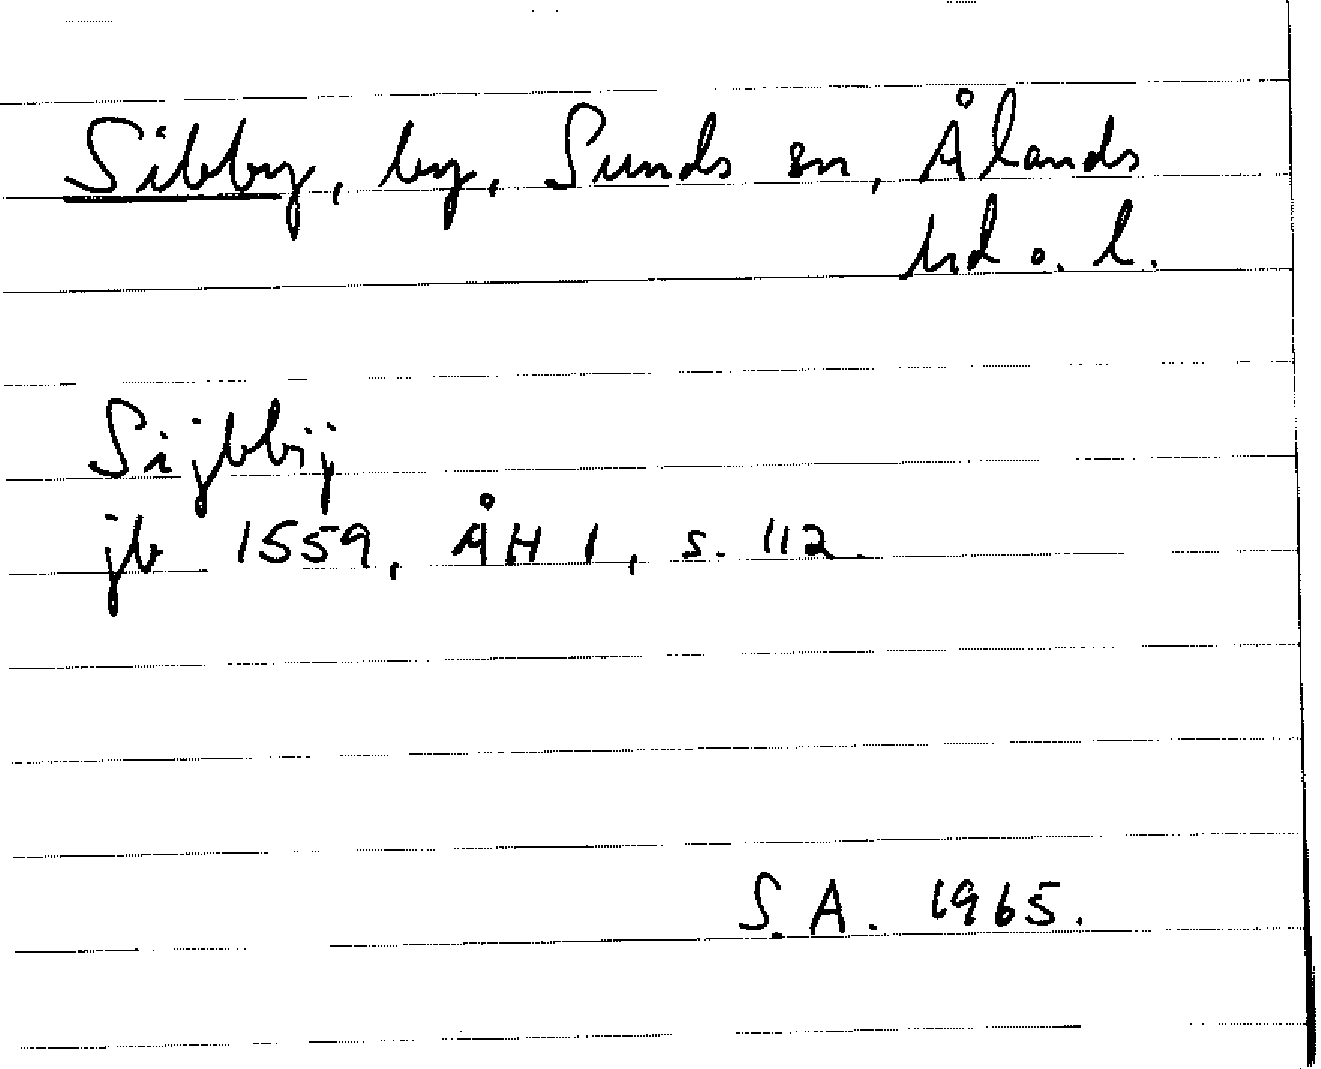 Sibby, by, Sunds sn, Ålands
hd o. l.
Sijbbij
jb 1559, ÅH 1, s. 112.
S.A. 1965.